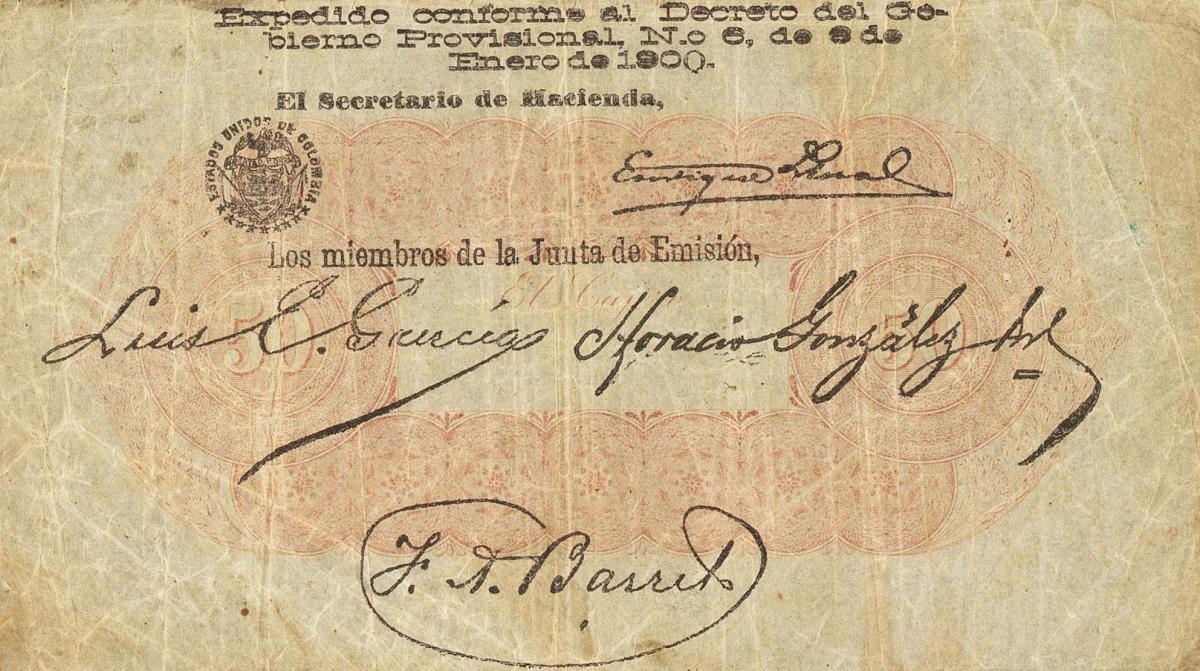 Expedido conforme al Decreto del Go-
bierno Provisional, N.o 6, de 8 de
Enero de 1900.
El Secretario de Hacienda,
ESTADOS UNIDOS DE COLOMBIA
Enrique
Los miembros de la Junta de Emisión,
El
Luis E. García Horacio González
50 50
F. A. Barreto